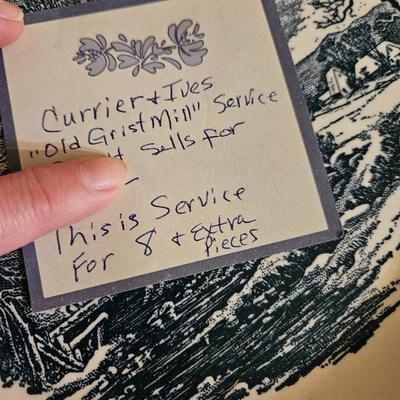 Currier & Ives
"Old Grist Mill" Service
Sells for
This is Service
For 8 & Extra
Pieces